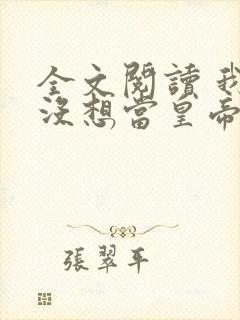 全文閱讀 我
沒想當皇帝
張翠平